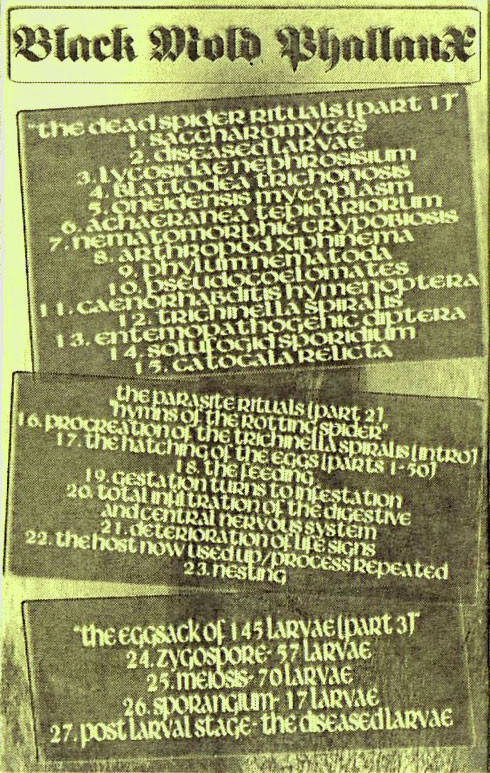 Black Mold PhallanX
"the dead spider rituals (part 1)"
1. saccharomyces
2. diseased larvae
3. lycosidae nephrosisium
4. blattodea trichonosis
5. oneidensis mycoplasm
6. achaeranea tepidariorum
7. nematomorphic crypobiosis
8. arthropod xiphinema
9. phylum nematoda
10. pseudocoelomates
11. caenorhabditis hymenoptera
12. trichinella spiralis
13. entemopathogenic diptera
14. solufogid sporidium
15. catocala relicta
the parasite rituals (part 2)
"hymns of the rotting spider"
16. procreation of the trichinella spiralis (intro)
17. the hatching of the eggs (parts 1-50)
18. the feeding
19. gestation turns to infestation
20. total infiltration of the digestive
and central nervous system
21. deterioration of life signs
22. the host now used up/process repeated
23. nesting
"the eggsack of 145 larvae (part 3)"
24. zygospore- 57 larvae
25. meiosis- 70 larvae
26. sporangium- 17 larvae
27. post larval stage- the diseased larvae